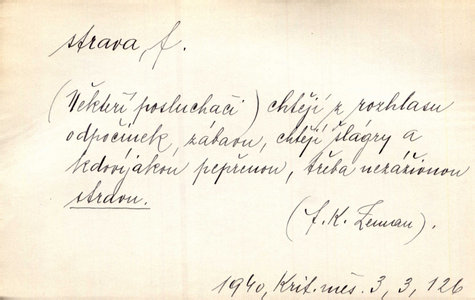 strava, f.
(Někteří posluchači) chtějí z rozhlasu
odpočinek, zábavu, chtějí šlágry a
kdovíjakou pepřenou, třeba nezáživnou
stravu.
(J. K. Zeman).
1940, Krit. měs. 3, 3, 126